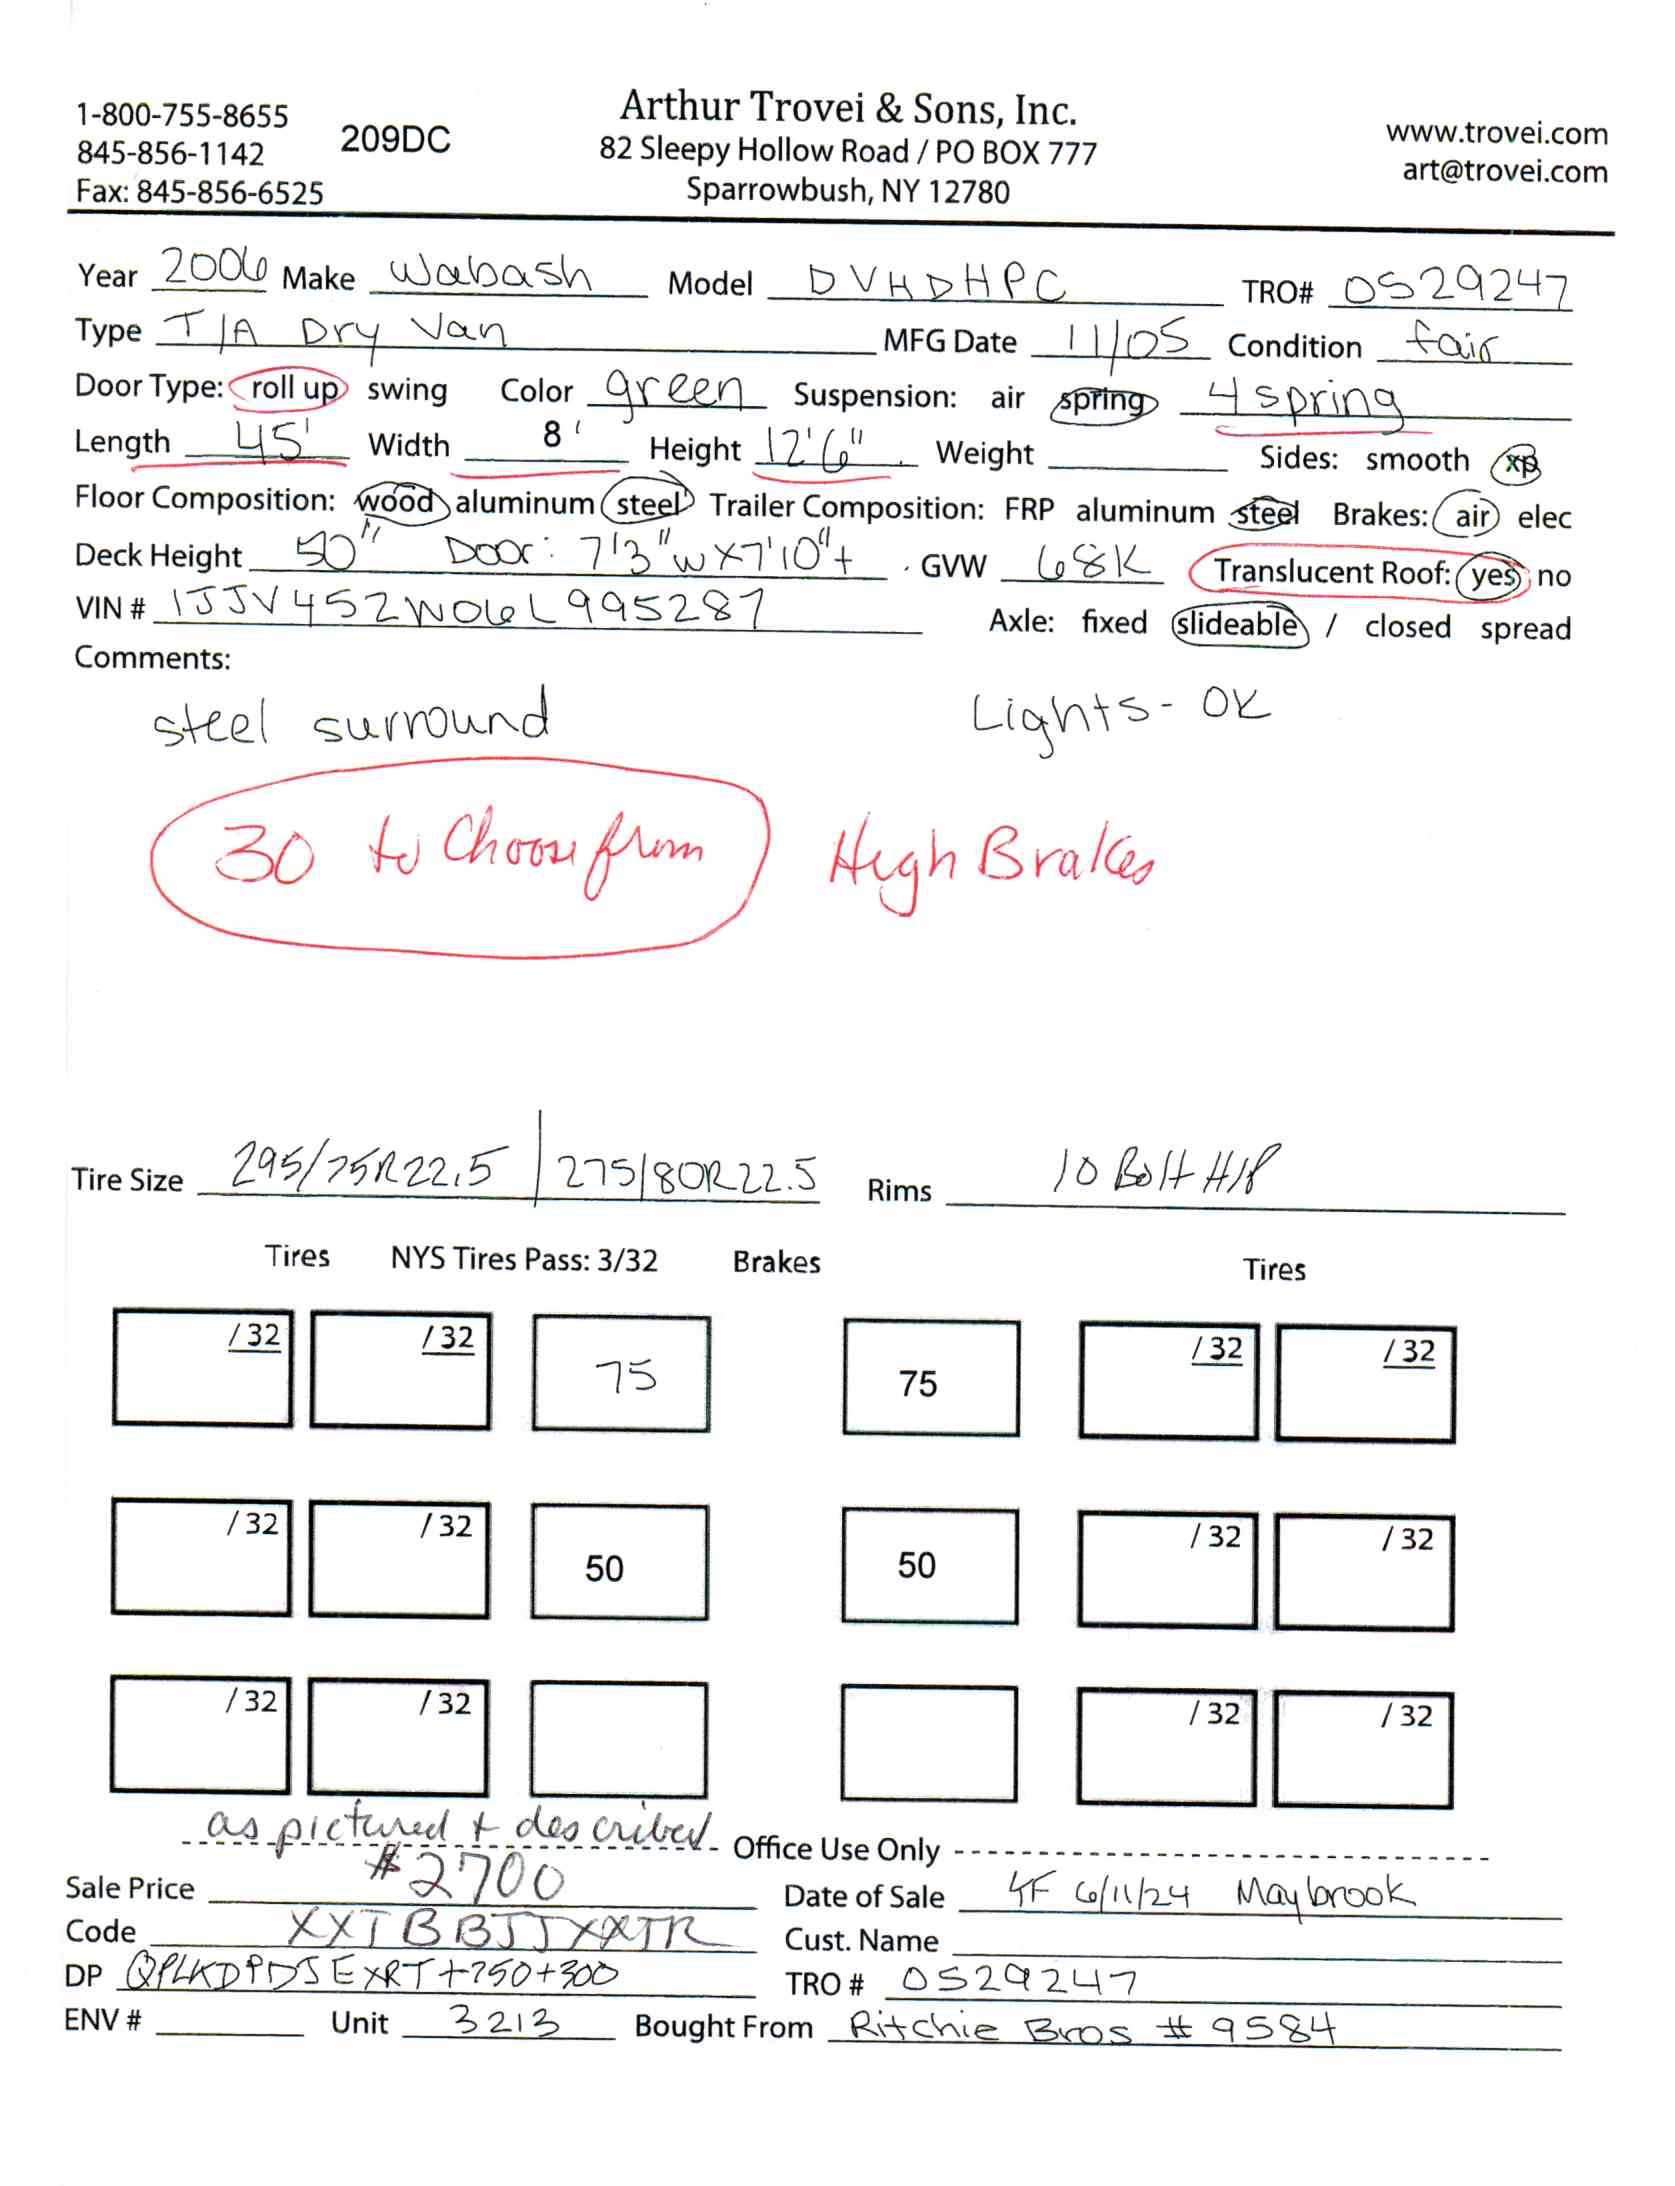 1-800-755-8655
845-856-1142
Fax: 845-856-6525
209DC
Arthur Trovei & Sons, Inc.
82 Sleepy Hollow Road / PO BOX 777
Sparrowbush, NY 12780
www.trovei.com
art@trovei.com
Year 2006 Make Wabash Model DVHDHPC TRO# 0529247
Type T/A Dry Van MFG Date 11/05 Condition fair
Door Type: roll up swing Color green Suspension: air spring 4 spring
Length 45' Width 8' Height 12'6" Weight Sides: smooth xp
Floor Composition: wood aluminum steel Trailer Composition: FRP aluminum steel Brakes: air elec
Deck Height 50" Door: 7'3"w x 7'10"+ GVW 68K Translucent Roof: yes no
VIN # 1JJV452W06L995287 Axle: fixed slideable / closed spread
Comments:
steel surround Lights- OK
30 to Choose from High Brakes
Tire Size 295/75R22.5 | 275/80R22.5 Rims 10 Bolt H/P
Tires NYS Tires Pass: 3/32 Brakes Tires
/ 32 / 32 75 75 / 32 / 32
/ 32 / 32 50 50 / 32 / 32
/ 32 / 32 / 32 / 32
as pictured + described Office Use Only
Sale Price $2700 Date of Sale 6/11/24 Maybrook
Code XXTBBJJXXTR Cust. Name
DP QPLKDPDJEXRT+750+300 TRO # 0529247
ENV # Unit 3213 Bought From Ritchie Bros # 9584